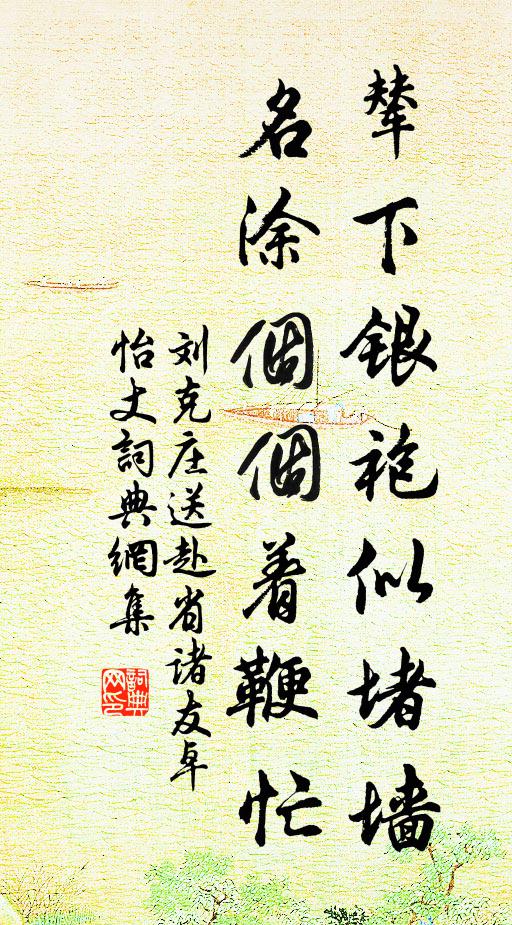 辇下银袍似堵墙
名涂個個着鞭忙
刘克庄送赴省诸友卓
怡丈詞典網集
詞典网印